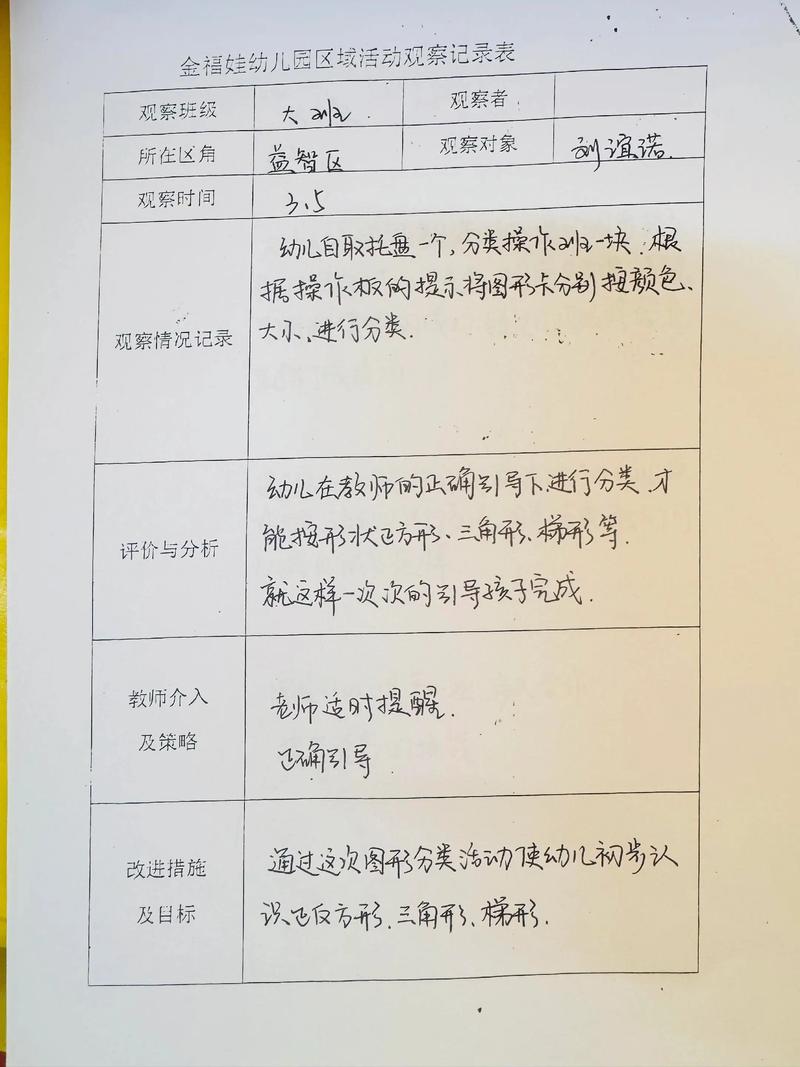 金福娃幼儿园区域活动观察记录表
观察班级 大班 观察者
所在区角 益智区 观察对象 刘谊诺.
观察时间 3.5
观察情况记录
幼儿自取托盘一个,分类操作班一块.根
据操作板的提示将图形卡分别按颜色、
大小、进行分类.
评价与分析
幼儿在教师的正确引导下进行分类.才
能按形状正方形、三角形、梯形等.
就这样一次次的引导孩子完成.
教师介入
及策略
老师适时提醒.
正确引导
改进措施
及目标
通过这次图形分类活动使幼儿初步认
识正方形.三角形、梯形.